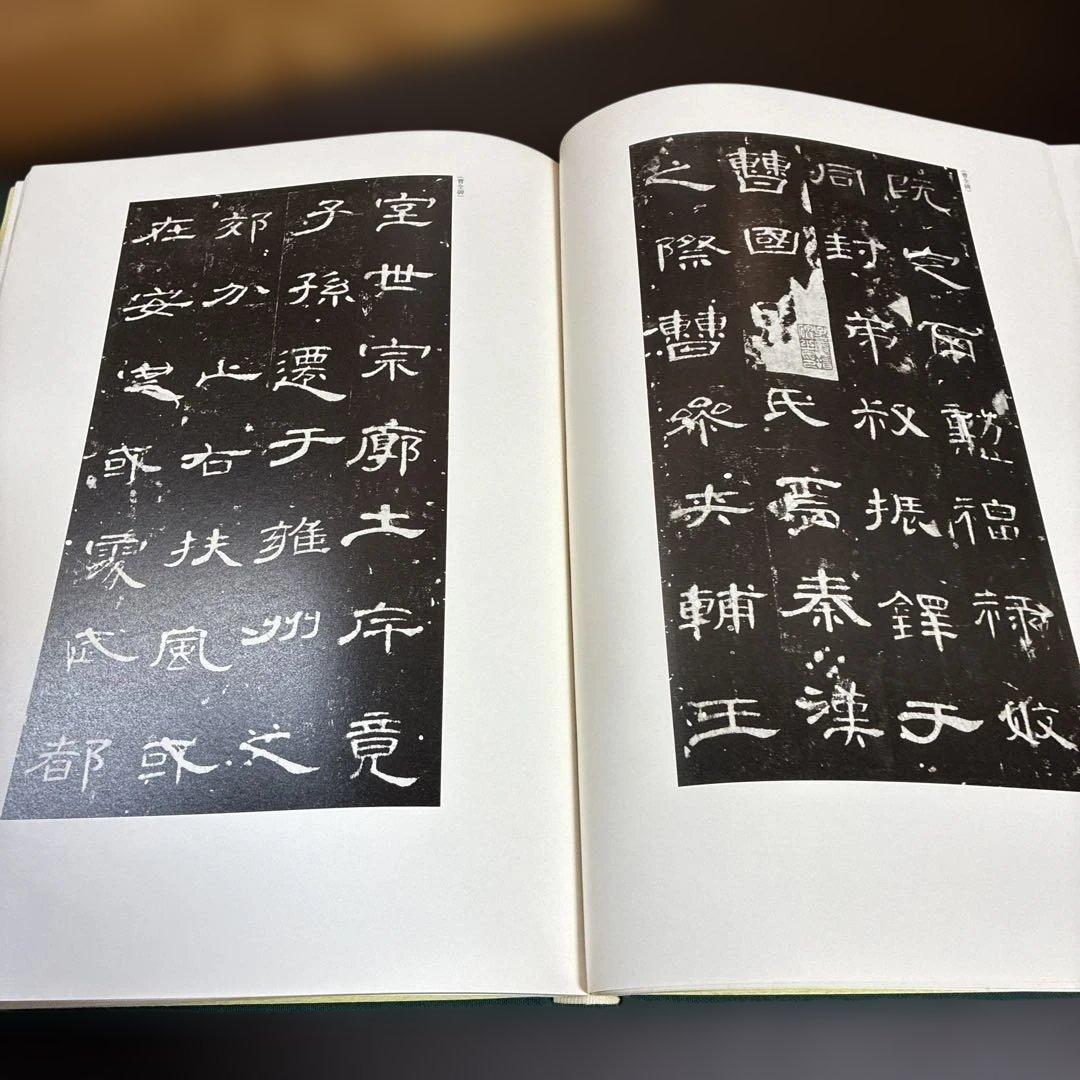 (曹全碑)
既定爾勳福祿攸
同封弟叔振鐸于
曹國氏焉秦漢
之際曹參夾輔王
(曹全碑)
室世宗廓土斥竟
子孫遷于雍州之
郊分止右扶風或
在安定或處武都